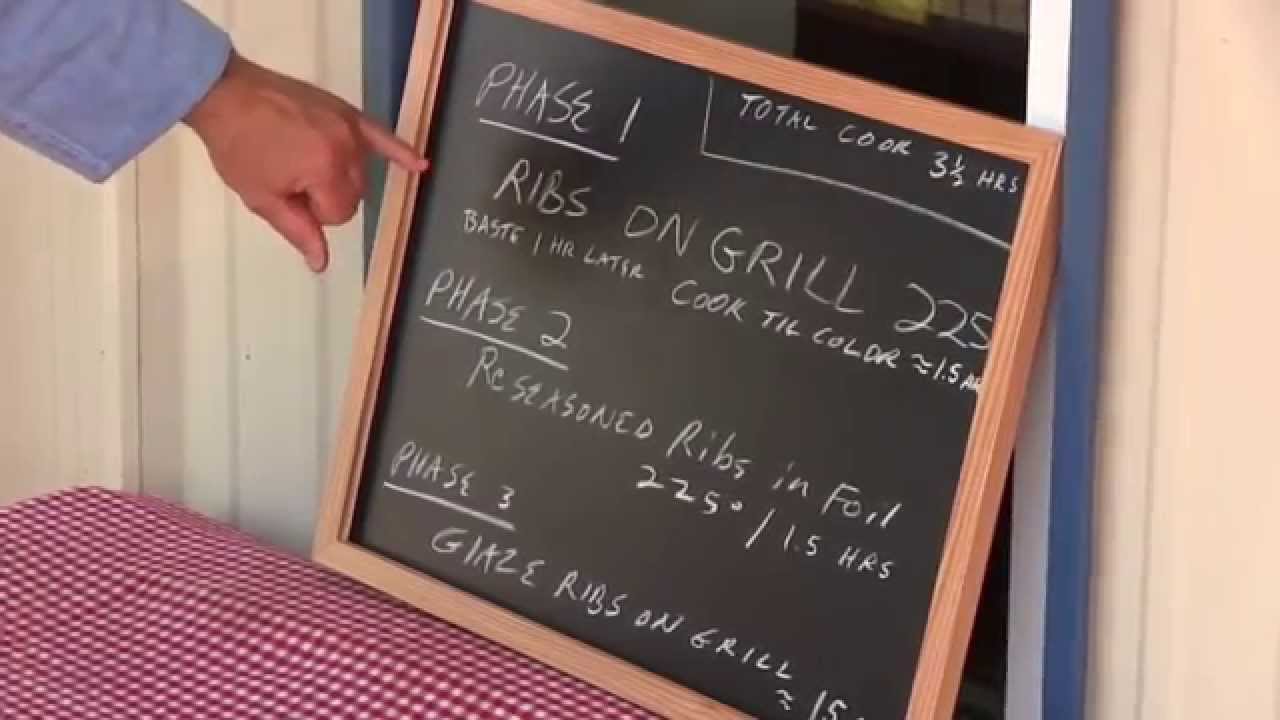 PHASE 1
TOTAL COOK 3½ HRS
RIBS ON GRILL 225
BASTE 1 HR LATER COOK TIL COLOR ≈1.5 HR
PHASE 2
ReSEASONED Ribs in Foil
225° / 1.5 HRS
PHASE 3
GlAZE RIBS ON GRILL
≈ 15